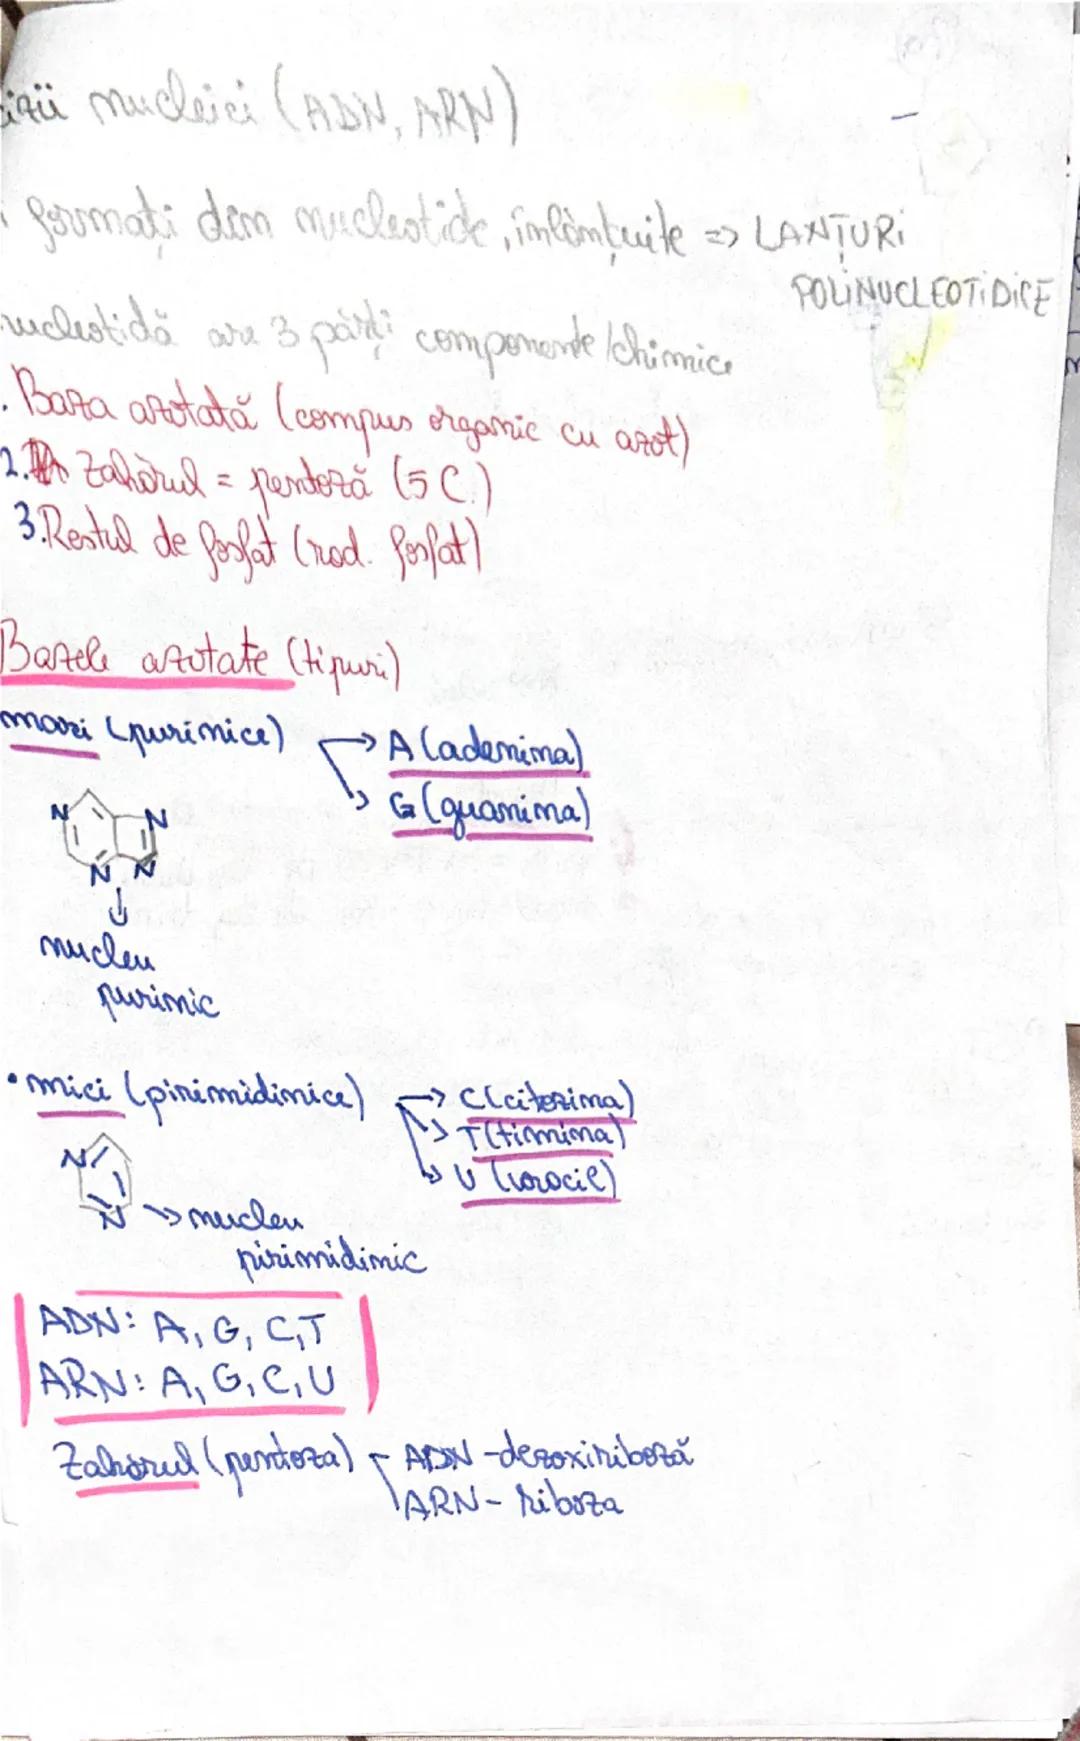 cizii nucleici (ADN, ARN)
formați din nucleotide, înlănțuite => LANȚURI
POLINUCLEOTIDICE
nucleotidă are 3 părți componente/chimice
. Baza azotată (compus organic cu azot)
2. Zahărul = pentoză (5 C.)
3. Restul de fosfat (rad. fosfat)
Bazele azotate (tipuri)
mari (purinice) → A (adenina)
→ G (guanina)
N N
N N
↓
nucleu
purinic
• mici (pirimidinice) → C (citozina)
→ T (timina)
→ U (uracil)
N
N → nucleu
pirimidinic
ADN: A, G, C, T
ARN: A, G, C, U
Zahărul (pentoza) - ADN - dezoxiriboză
ARN - riboza